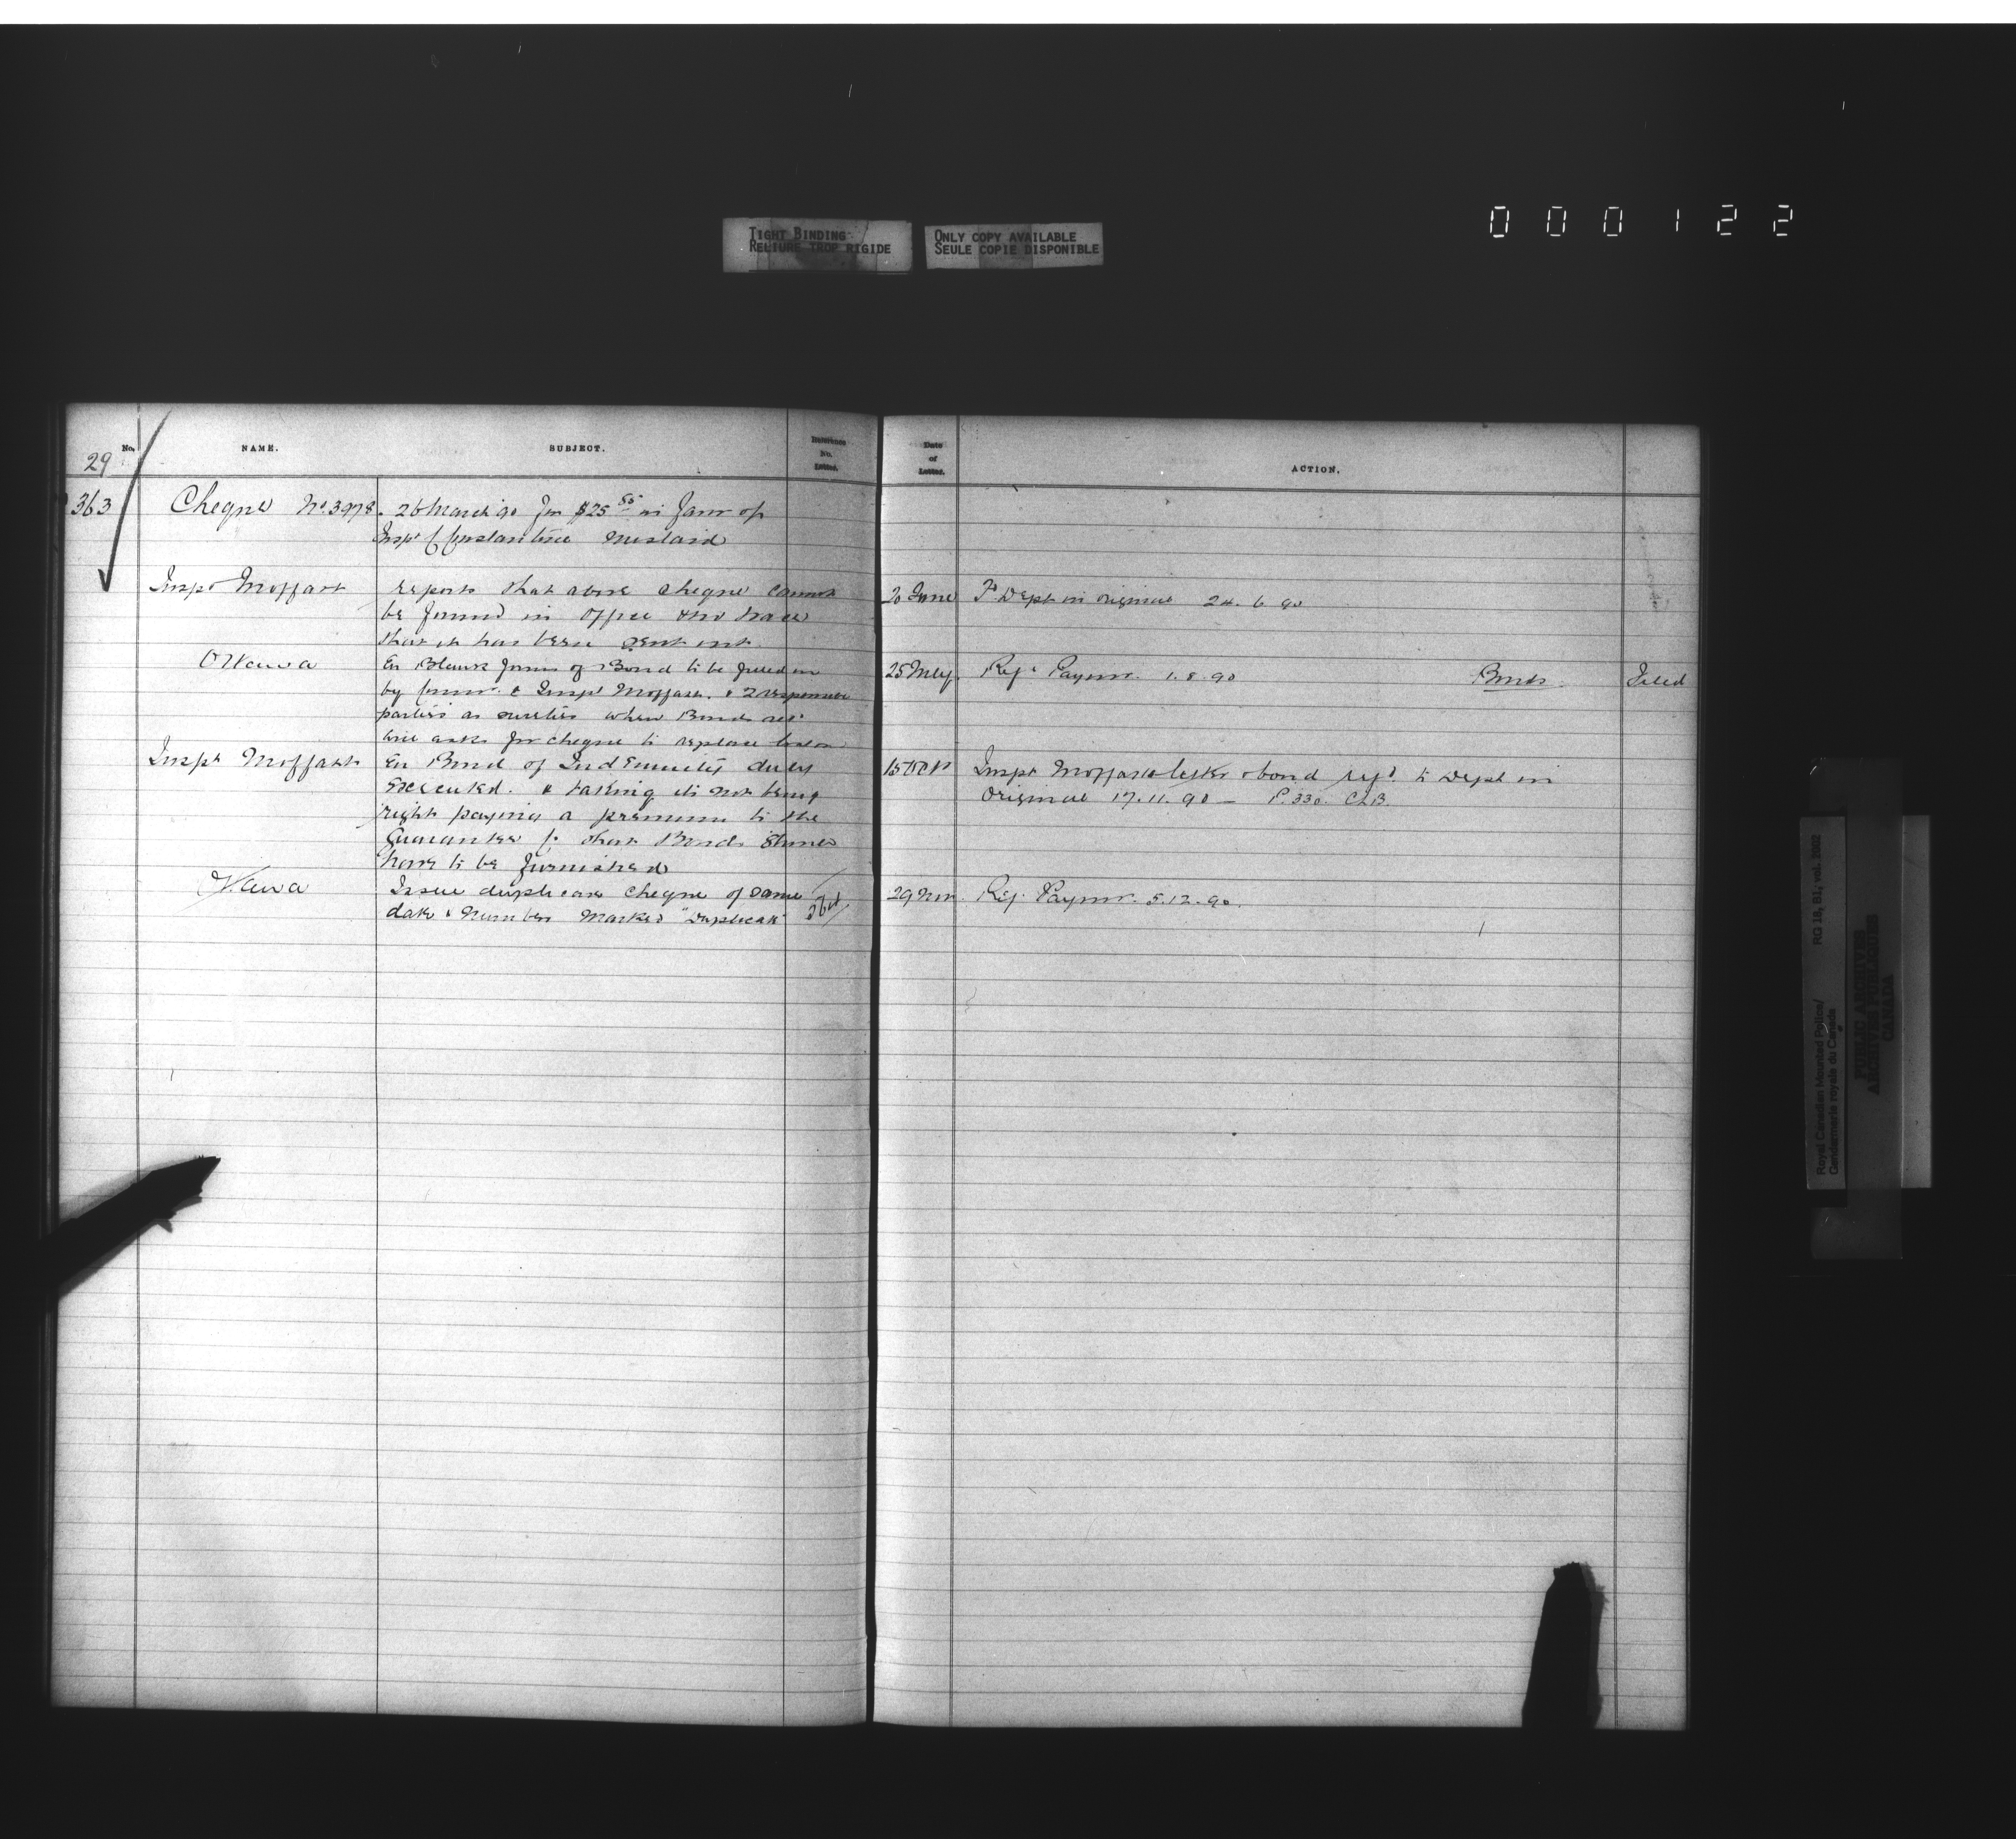 000122
TIGHT BINDING
RELIURE TROP RIGIDE
ONLY COPY AVAILABLE
SEULE COPIE DISPONIBLE
No. NAME. SUBJECT. Reference No. Letter. Date of Letter. ACTION.
29
363 Cheque No. 3978. 26 March 90 for $25 55 in favor of
Inspr Constantine mislaid
Inspr Moffatt reports that above cheque cannot 20 June To Dept in original 24.6.90
be found in Office & no trace
that it has been sent out.
Ottawa En Blank forms of Bond to be filled in 25 July. Regt Paymr. 1.8.90 Bonds. Filed
by & Inspr Moffatt. & 2 responsible
parties as sureties when Bonds
will ask for cheque to replace
Inspr Moffatt En Bond of Indemnity duly 15 Oct Inspr Moffatts letter & bond to Dept in
executed. & talking its not being original 17.11.90 — P. 330.
right paying a premium to the
Guarantee that Bonds should
have to be furnished
Ottawa Issue duplicate cheque of same 29 Nov. Reg. Paymr. 5.12.90.
date & number marked "Duplicate"
Royal Canadian Mounted Police/
Gendarmerie royale du Canada
RG 18, B1, vol. 2002
PUBLIC ARCHIVES
ARCHIVES PUBLIQUES
CANADA